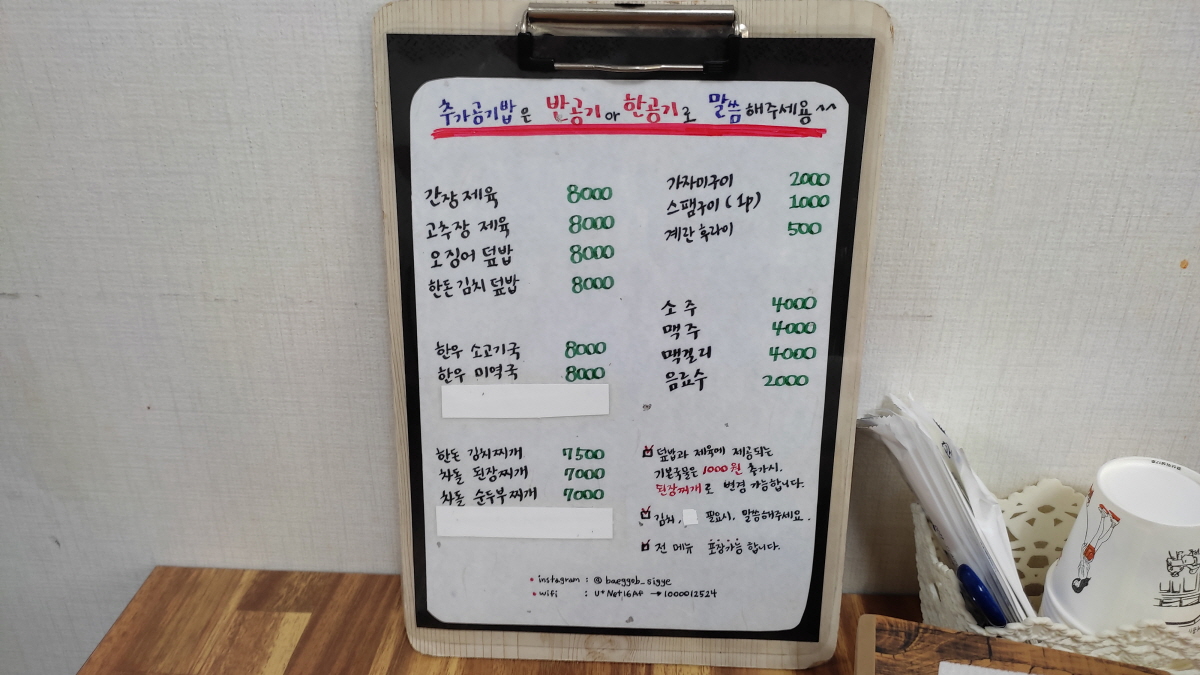 추가공기밥은 반공기 아 한공기로 말씀해주세요^^
간장 제육 8000
고추장 제육 8000
오징어 덮밥 8000
한돈 김치 덮밥 8000
한우 소고기국 8000
한우 미역국 8000
한돈 김치찌개 7500
차돌 된장찌개 7000
차돌 순두부찌개 7000
가자미구이 2000
스팸구이 (1p) 1000
계란 후라이 500
소주 4000
맥주 4000
맥걸리 4000
음료수 2000
덮밥과 제육에 제공되는
기본국물은 1000원 추가시,
된장찌개로 변경 가능합니다.
김치, 필요시, 말씀해주세요.
전 메뉴 포장가능 합니다.
instagram : @baeggob_sigye
wifi : U+Net16AF → 1000012524